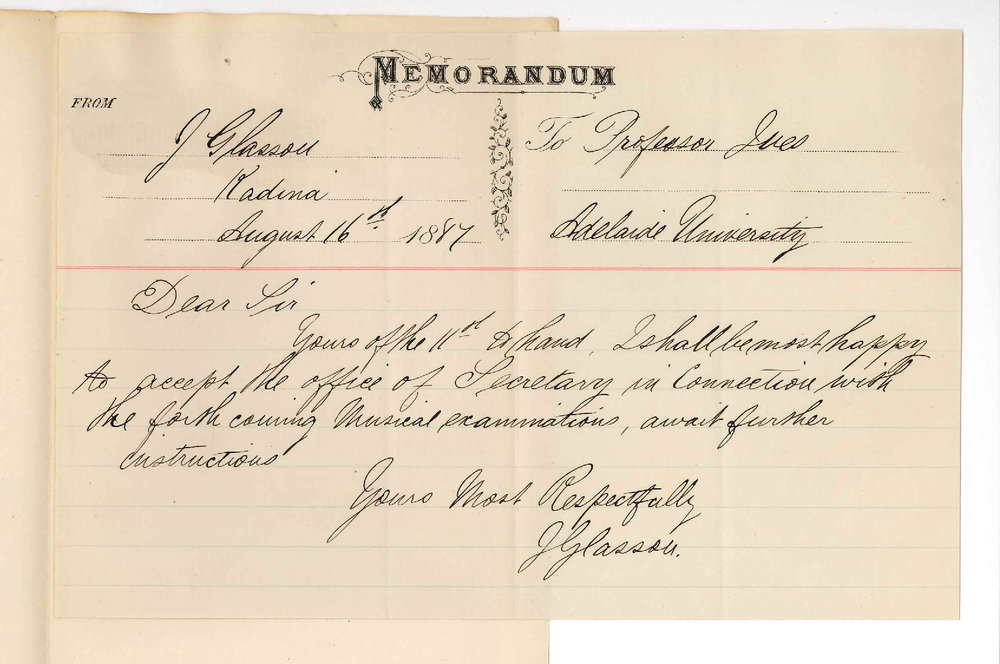 MEMORANDUM
FROM
J Glasson
To Professor Ives
Kadina
August 16th 1887
Adelaide University
Dear Sir
Yours of the 11th to hand, I shall be most happy
to accept the office of Secretary in Connection with
the forth coming Musical examinations, await further
instructions
Yours Most Respectfully
J Glasson.